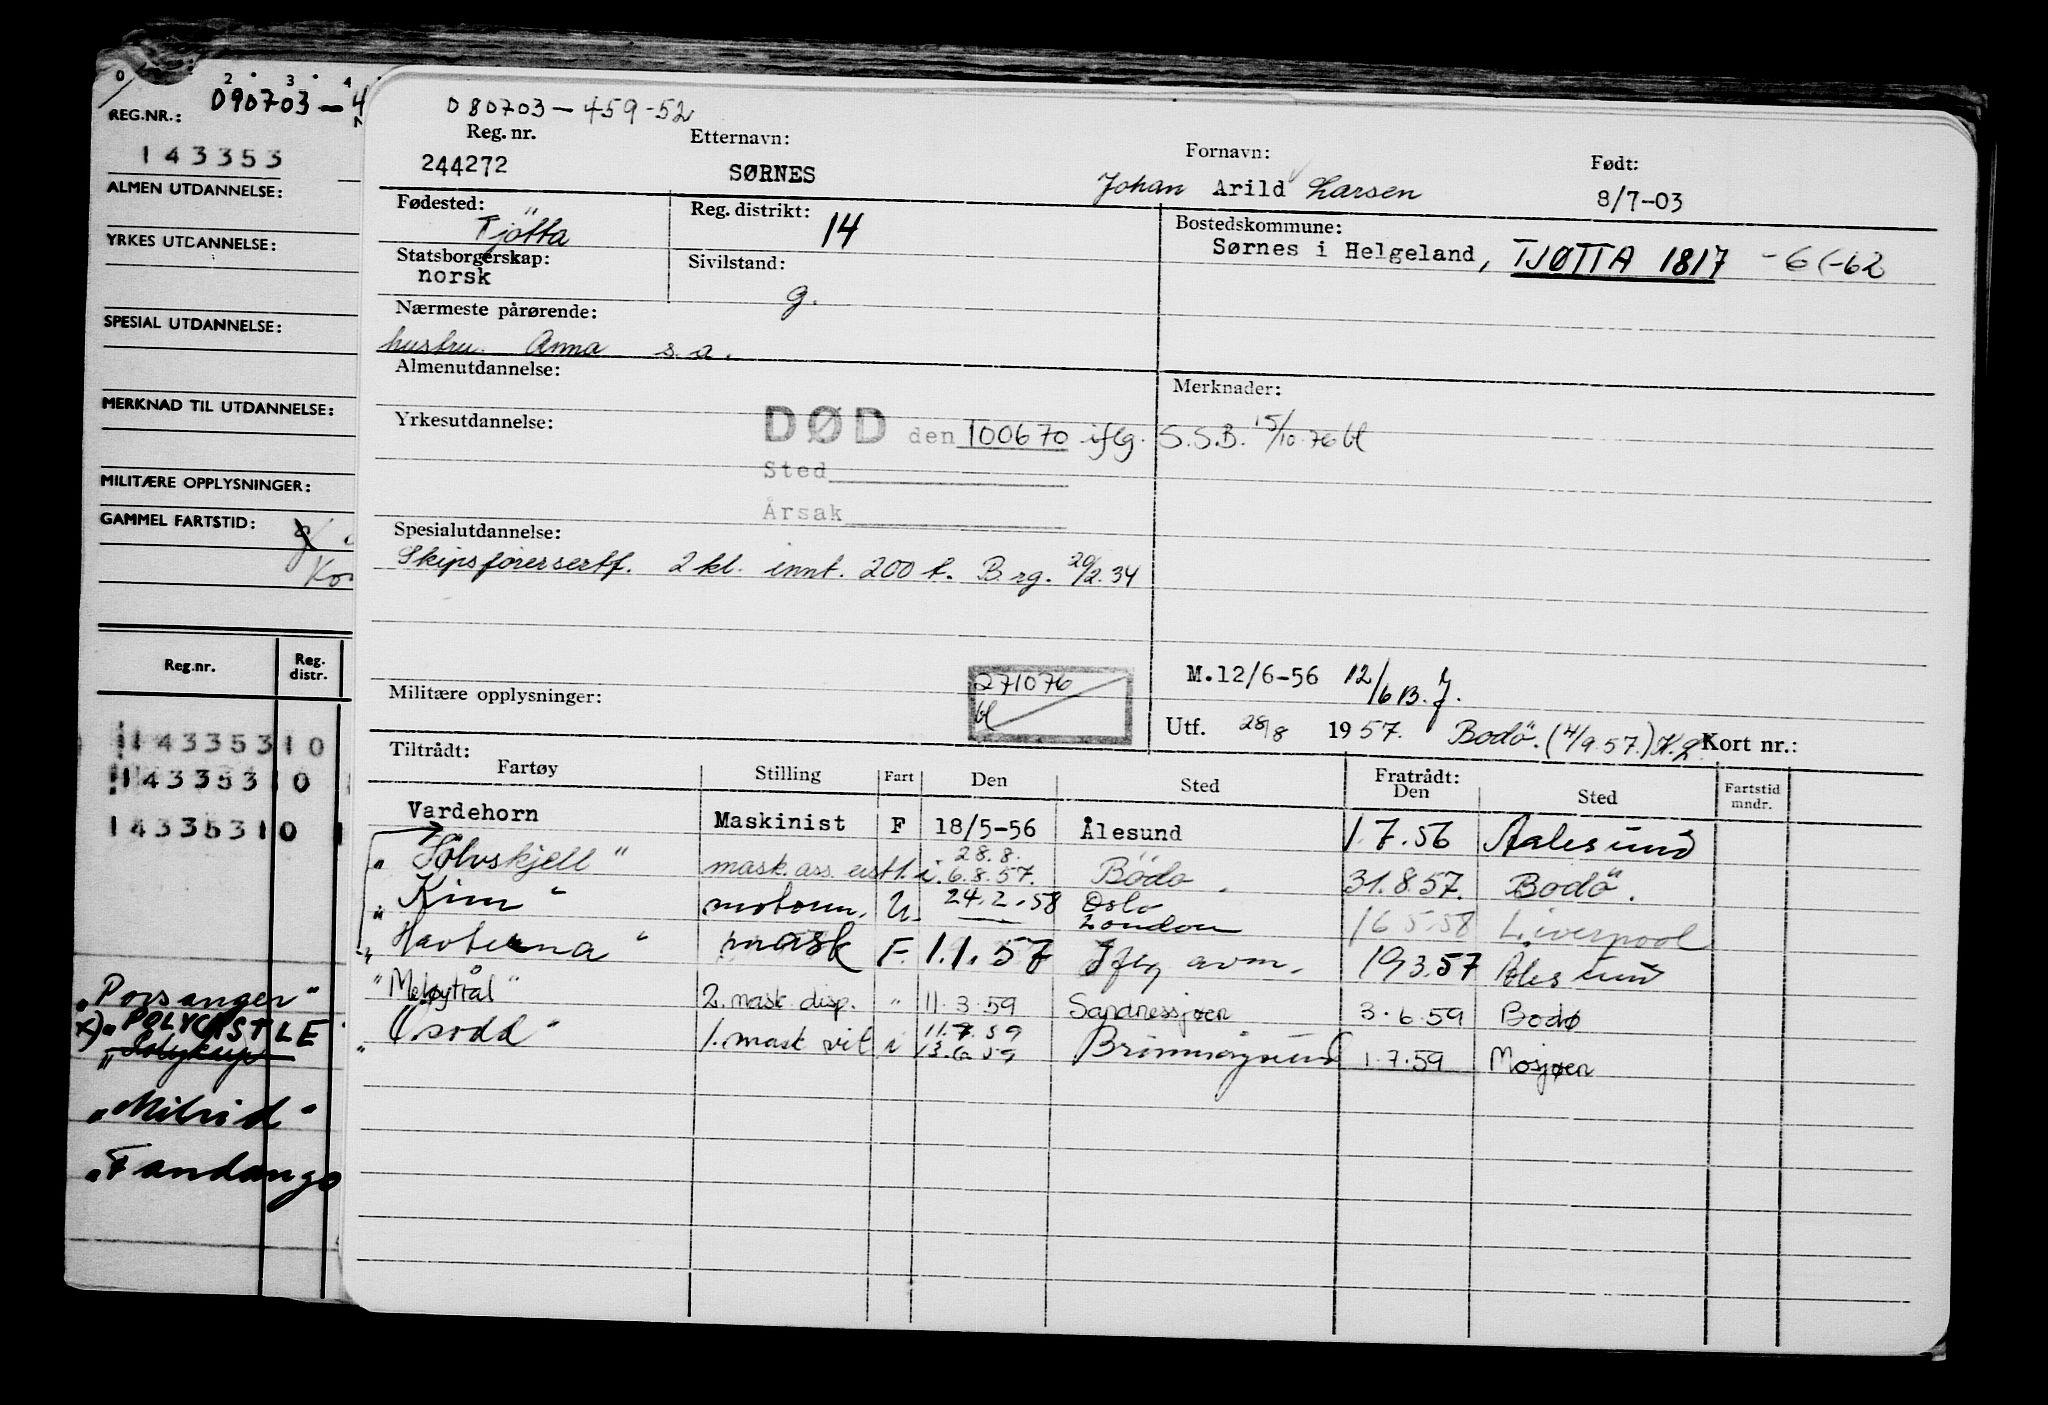 0 2 3 4
REG.NR.: 090703-4
143353
ALMEN UTDANNELSE:
YRKES UTDANNELSE:
SPESIAL UTDANNELSE:
MERKNAD TIL UTDANNELSE:
MILITÆRE OPPLYSNINGER:
GAMMEL FARTSTID:
Reg.nr. Reg. distr.
143353 10
143353 10
143353 10
„Porsanger"
x) „POLYCASTLE"
„Milrid"
„Fandango
080703-459-52
Reg. nr. Etternavn: Fornavn: Født:
244272 SØRNES Johan Arild Larsen 8/7-03
Fødested: Tjötta Reg. distrikt: 14 Bostedskommune:
Sørnes i Helgeland, TJØTTA 1817 -6(-62
Statsborgerskap: norsk Sivilstand: g.
Nærmeste pårørende:
hustru Anna s.a.
Almenutdannelse: Merknader:
Yrkesutdannelse: DØD den 100670 iflg. S.S.B. 15/10.76 bl
Sted
Årsak
Spesialutdannelse:
Skipsførersertf. 2 kl. innt. 200 t. B.rg. 20/2.34
Militære opplysninger: 271076 bl
M.12/6-56 12/6 B.J.
Utf. 28/8 1957. Bodö. (4/9.57.) Kort nr.:
Tiltrådt: Fratrådt:
Fartøy Stilling Fart Den Sted Den Sted Fartstid mndr.
Vardehorn Maskinist F 18/5-56 Ålesund 1.7.56 Aalesund
28.8.
„Sölvskjell" mask. ass. i. 6.8.57. Bödo. 31.8.57. Bodö.
„Kim" motorm. U. 24.2.58 Oslo
London 16.5.58 Liverpool
„Havterna" mask F. 1.1.57 Iflg avm. 19.3.57 Ålesund
"Meløytrål" 2. mask. disp. " 11.3.59 Sandnessjøen 3.6.59 Bodø
11.7.59
„Orodd" 1. mask vit i 13.6.59 Brönnöysund 1.7.59 Mosjøen